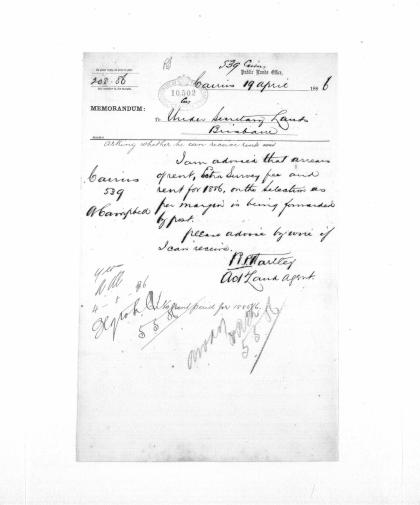 539 Cairns
Public Lands Office,
Cairns 19 April 1886
208-86
10,502
MEMORANDUM:
To Under Secretary Lands
Brisbane
asking whether he can receive rent
I am advised that arrears
of rent, Extra Survey fee and
rent for 1886, on the selection as
per margin is being forwarded
by post.
Cairns
539
Campbell
please advise by wire if
I can receive.
Hartley
Act Land Agent.
yes
4-5-86
5 5 86
5 5 86